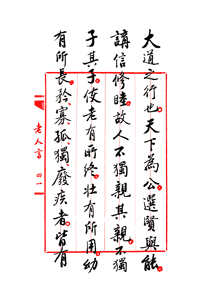 大道之行也天下為公選賢與能
講信修睦故人不獨親其親不獨
子其子使老有所終壯有所用幼
有所長矜寡孤獨廢疾者皆有
老人言 四一